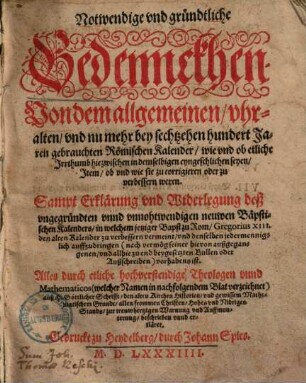 Notwendige vnd gründtliche
Bedennckhen
Von dem allgemeinen / vhr-
alten / vnd nu mehr bey sechtzehen hundert Ja-
ren gebrauchten Römischen Kalender / wie vnd ob etliche
Irrthumb hiezwischen in demselbigen eyngeschlichen seyen /
Item / ob vnd wie sie zu corrigieren oder zu
verbessern weren.
Sampt Erklärung vnd Widerlegung deß
vngegründten vnnd vnnohtwendigen neuwen Bäpsti-
schen Kalenders / in welchem jetziger Bapst zu Rom / Gregorius XIII.
den alten Kalender zu verbessern vermeint / vnd denselben jederman mügs
lich auffzudringen ( nach vermög seiner hievon außgegan-
genen / vnd allhie zu end beygesetzten Bullen oder
Außschreiben ) vorhabens ist.
Alles durch etliche hochverstendige Theologen vnnd
Mathematicos (welcher Namen in nachfolgendem Blat verzeichnet)
auß H. Göttlicher Schrifft / den alten Kirchen Historien / vnd gewissem Mathe-
matischem Grunde / allen frommen Christen / Hohes vnd Nidriges
Stands / zur treuwhertzigen Warnung vnd Auffmun-
terung / beschrieben vnnd er-
kläret.
Getruckt zu Heydelberg / durch Johann Spies.
M. D. LXXXIIII.
Sum Joh.